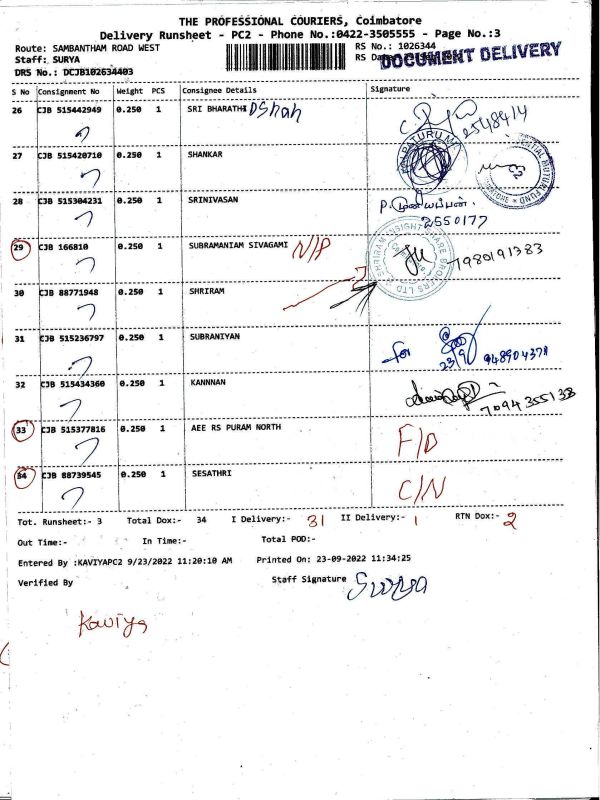 THE PROFESSIONAL COURIERS, Coimbatore
Delivery Runsheet - PC2 - Phone No.:0422-3505555 - Page No.:3
Route: SAMBANTHAM ROAD WEST
RS No.: 1026344
Staff: SURYA
RS Da
DOCUMENT DELIVERY
DRS No.: DCJB102634403
S No Consignment No Weight PCS Consignee Details Signature
26 CJB 515442949 0.250 1 SRI BHARATHI DShah
2548414
27 CJB 515420710 0.250 1 SHANKAR
28 CJB 515304231 0.250 1 SRINIVASAN
P. முனியப்பன்.
2550177
29 CJB 166810 0.250 1 SUBRAMANIAM SIVAGAMI N/P
7980191383
30 CJB 88771948 0.250 1 SHRIRAM
31 CJB 515236797 0.250 1 SUBRANIYAN
23/9
32 CJB 515434360 0.250 1 KANNNAN
7094355138
33 CJB 515377816 0.250 1 AEE RS PURAM NORTH F/D
34 CJB 88739545 0.250 1 SESATHRI C/N
Tot. Runsheet:- 3 Total Dox:- 34 I Delivery:- 31 II Delivery:- 1 RTN Dox:- 2
Out Time:- In Time:- Total POD:-
Entered By :KAVIYAPC2 9/23/2022 11:20:10 AM Printed On: 23-09-2022 11:34:25
Verified By Staff Signature Surya
Kaviya